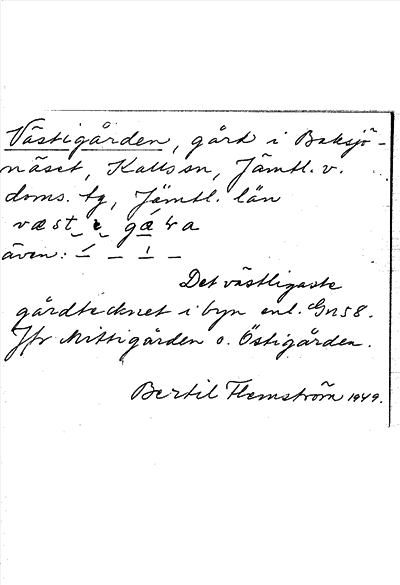 Västigården, gård i Baksjö-
näset, Kalls sn, Jämtl. v.
doms. tg, Jämtl. län
væst
även: – – – –
Det västligaste
gårdtecknet i byn enl. GN58.
Jfr Mittigården o. Östigården.
Bertil Flemström 1949.